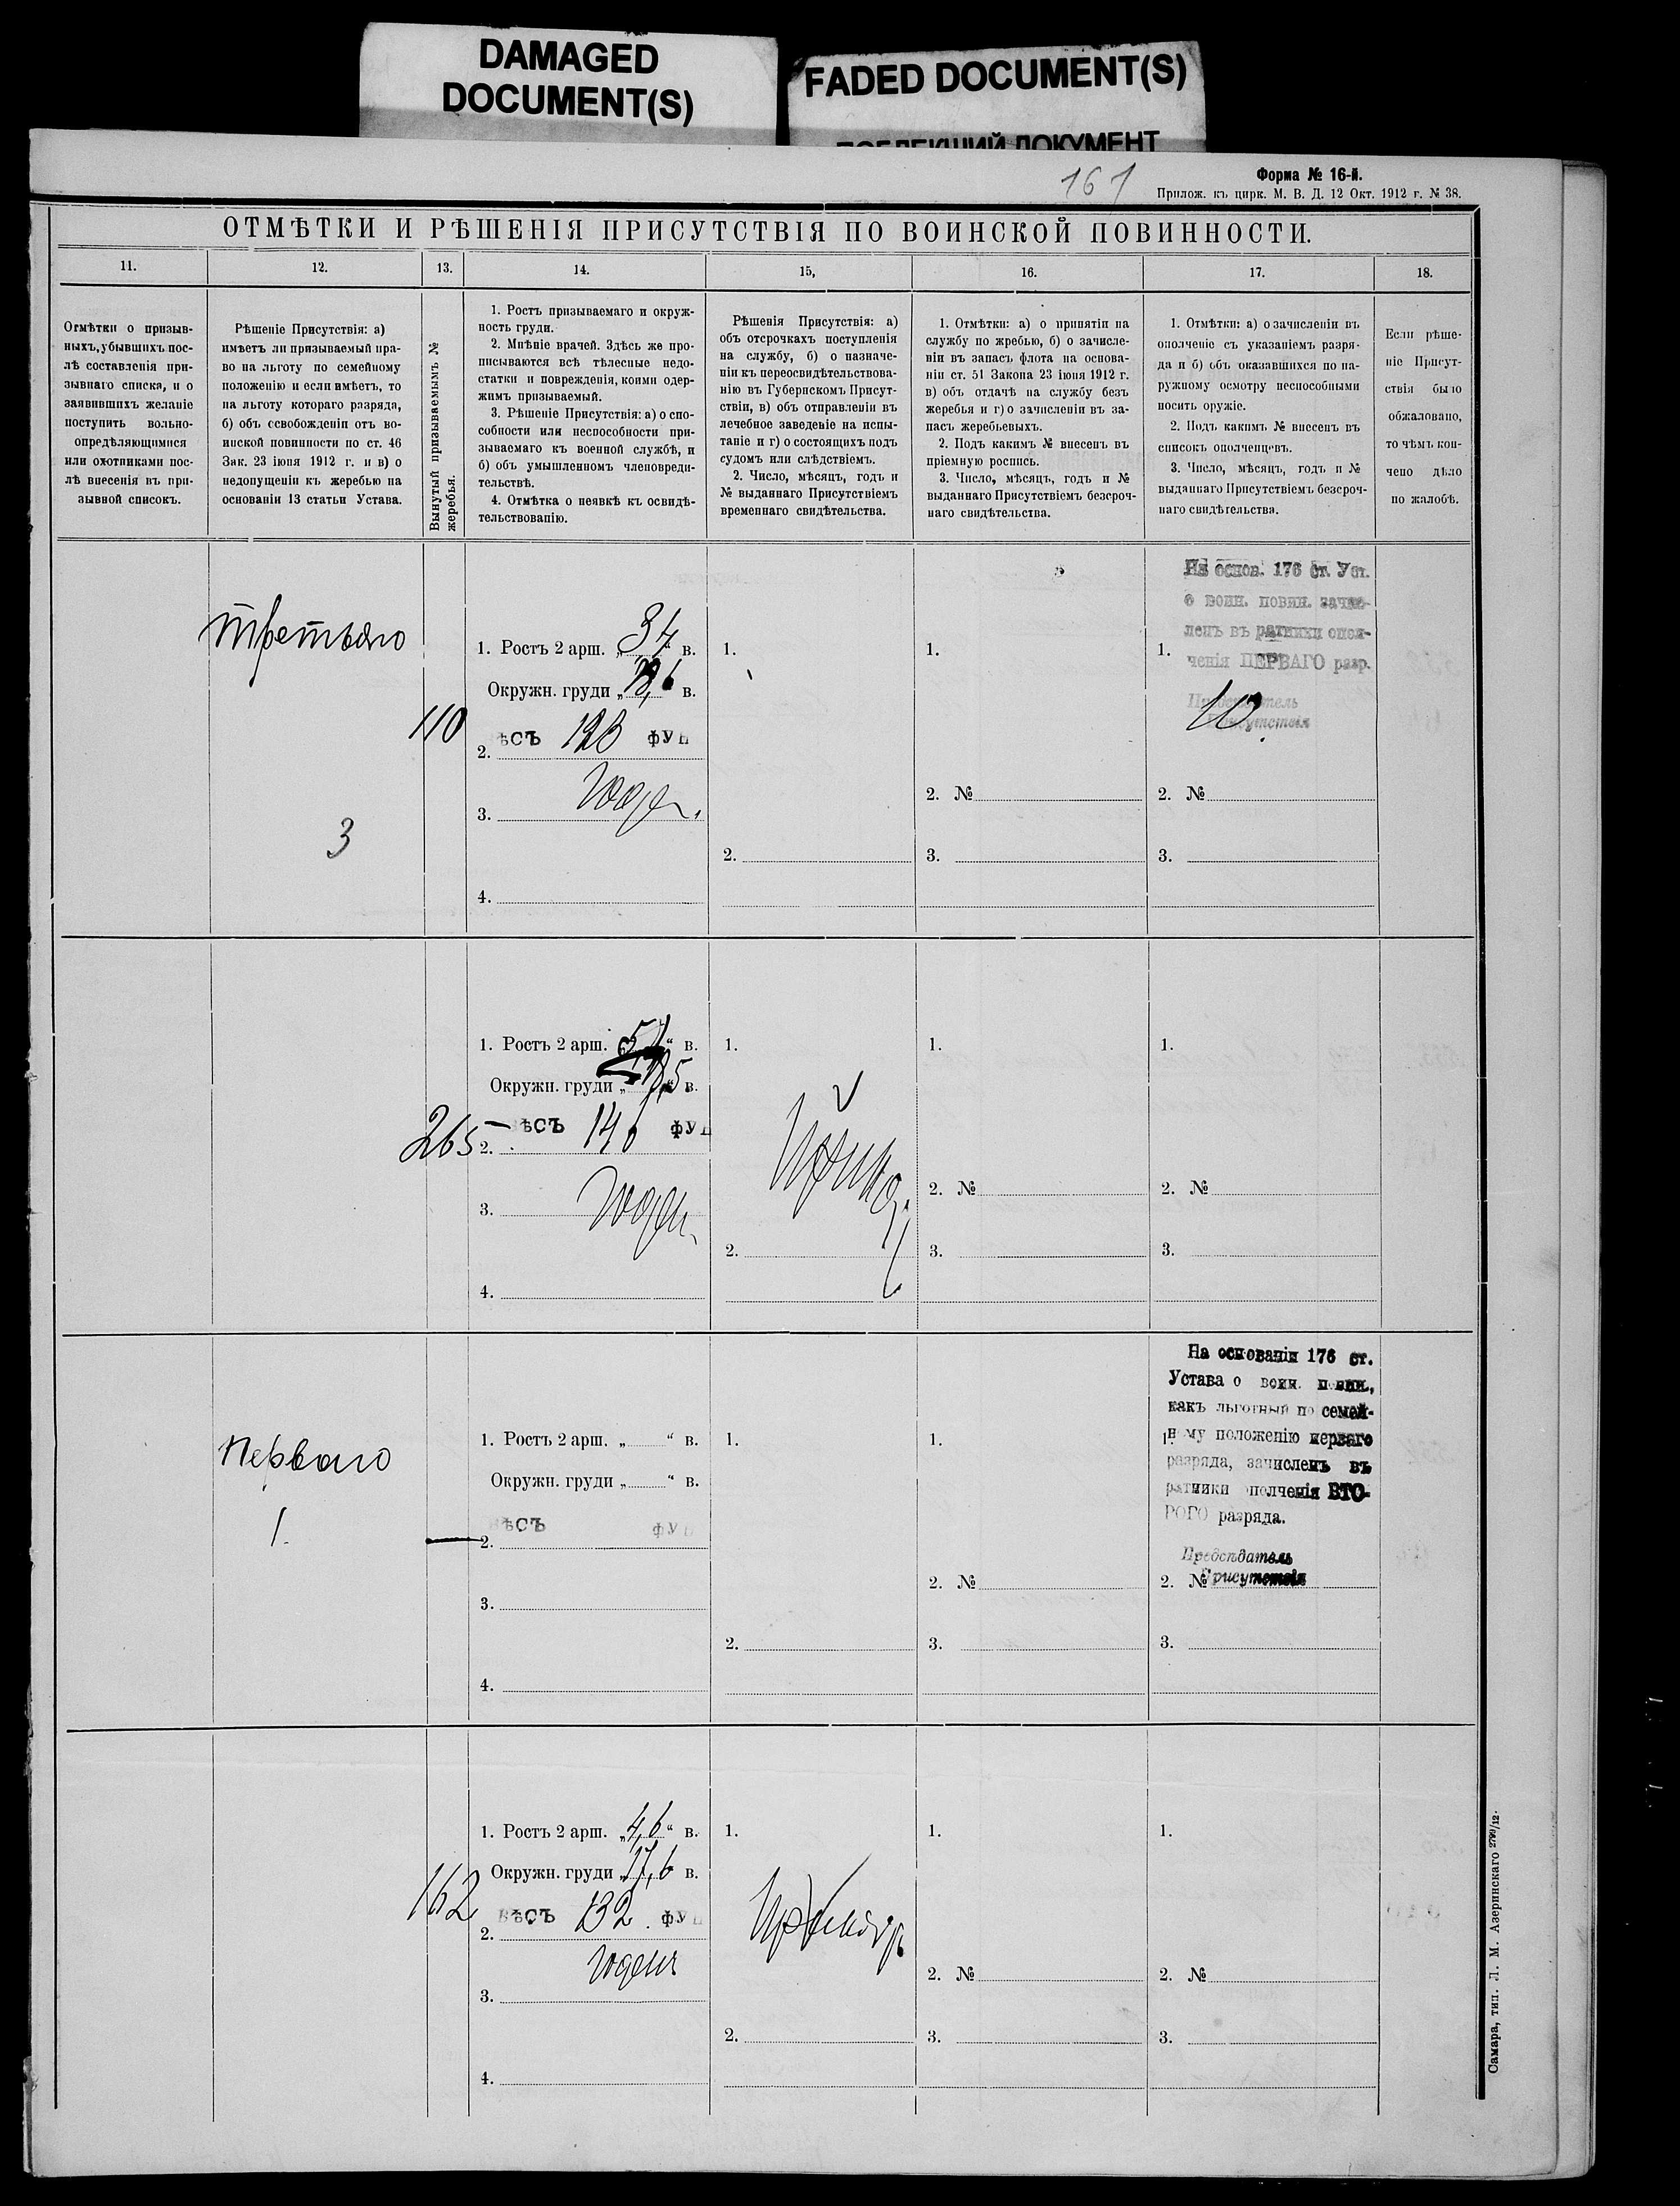 DAMAGED
DOCUMENT(S)
FADED DOCUMENT(S)
ДОКУМЕНТ
161
Форма № 16-й.
Прилож. къ цирк. М. В. Д. 12 Окт. 1912 г. № 38.
ОТМѢТКИ И РѢШЕНІЯ ПРИСУТСТВІЯ ПО ВОИНСКОЙ ПОВИННОСТИ.
11.
12.
13.
14.
15,
16.
17.
18.
Отмѣтки о призыв-
ныхъ, убывшихъ пос-
лѣ составленія при-
зывнаго списка, и о
заявившихъ желаніе
поступить вольно-
опредѣляющимися
или охотниками пос-
лѣ внесенія въ при-
зывной списокъ.
Рѣшеніе Присутствія: а)
имѣетъ ли призываемый пра-
во на льготу по семейному
положенію и если имѣетъ, то
на льготу котораго разряда,
б) объ освобожденіи отъ во-
инской повинности по ст. 46
Зак. 23 іюня 1912 г. и в) о
недопущеніи къ жеребью на
основаніи 13 статьи Устава.
Вынутый призываемымъ №
жеребья.
1. Ростъ призываемаго и окруж-
ность груди.
2. Мнѣніе врачей. Здѣсь же про-
писываются всѣ тѣлесные недо-
статки и поврежденія, коими одер-
жимъ призываемый.
3. Рѣшеніе Присутствія: а) о спо-
собности или неспособности при-
зываемаго къ военной службѣ, и
б) объ умышленномъ членовреди-
тельствѣ.
4. Отмѣтка о неявкѣ къ освидѣ-
тельствованію.
Рѣшенія Присутствія: а)
объ отсрочкахъ поступленія
на службу, б) о назначе-
ніи къ переосвидѣтельствова-
нію въ Губернскомъ Присут-
ствіи, в) объ отправленіи въ
лечебное заведеніе на испы-
таніе и г) о состоящихъ подъ
судомъ или слѣдствіемъ.
2. Число, мѣсяцъ, годъ и
№ выданнаго Присутствіемъ
временнаго свидѣтельства.
1. Отмѣтки: а) о принятіи на
службу по жребью, б) о зачисле-
ніи въ запасъ флота на основа-
ніи ст. 51 Закона 23 іюня 1912 г.
в) объ отдачѣ на службу безъ
жеребья и г) о зачисленіи въ за-
пасъ жеребьевыхъ.
2. Подъ какимъ № внесенъ въ
пріемную роспись.
3. Число, мѣсяцъ, годъ и №
выданнаго Присутствіемъ безсроч-
наго свидѣтельства.
1. Отмѣтки: а) о зачисленіи въ
ополченіе съ указаніемъ разря-
да и б) объ оказавшихся по на-
ружному осмотру неспособными
носить оружіе.
2. Подъ какимъ № внесенъ въ
списокъ ополченцевъ.
3. Число, мѣсяцъ, годъ и №
выданнаго Присутствіемъ безсроч-
наго свидѣтельства.
Если рѣше-
ніе Присут-
ствія было
обжаловано,
то чѣмъ кон-
чено дѣло
по жалобѣ.
третьяго
3
110
1. Ростъ 2 арш. „34“ в.
Окружн. груди „18,6 в.
ѣсъ 123 фун
2.
3. Годен.
4.
1.
2.
1.
2. №
3.
На основ. 176 ст. Уст.
о воин. повин. зачис-
ленъ въ ратники опол-
1.
ченія ПЕРВАГО разр.
Предсѣдатель
Присутствія
10.
2. №
3.
265
1. Ростъ 2 арш. „ “ в.
Окружн. груди „18,5 в.
ѣсъ фун
2.
3. Годен.
4.
1.
2.
1.
2. №
3.
1.
2. №
3.
перваго
1.
1. Ростъ 2 арш. „ “ в.
Окружн. груди „ “ в.
вѣсъ фун
2.
3.
4.
1.
2.
1.
2. №
3.
На основаніи 176 ст.
Устава о воин. повин.,
какъ льготный по семей-
ному положенію перваго
разряда, зачисленъ въ
ратники ополченія ВТО-
РОГО разряда.
Предсѣдатель
Присутствія
2. №
3.
162
1. Ростъ 2 арш. „4,6“ в.
Окружн. груди „17,6 в.
вѣсъ 132 фун
2.
годенъ
3.
4.
1.
2.
1.
2. №
3.
1.
2. №
3.
Самара, тип. Л. М. Азеринскаго 2799/12.